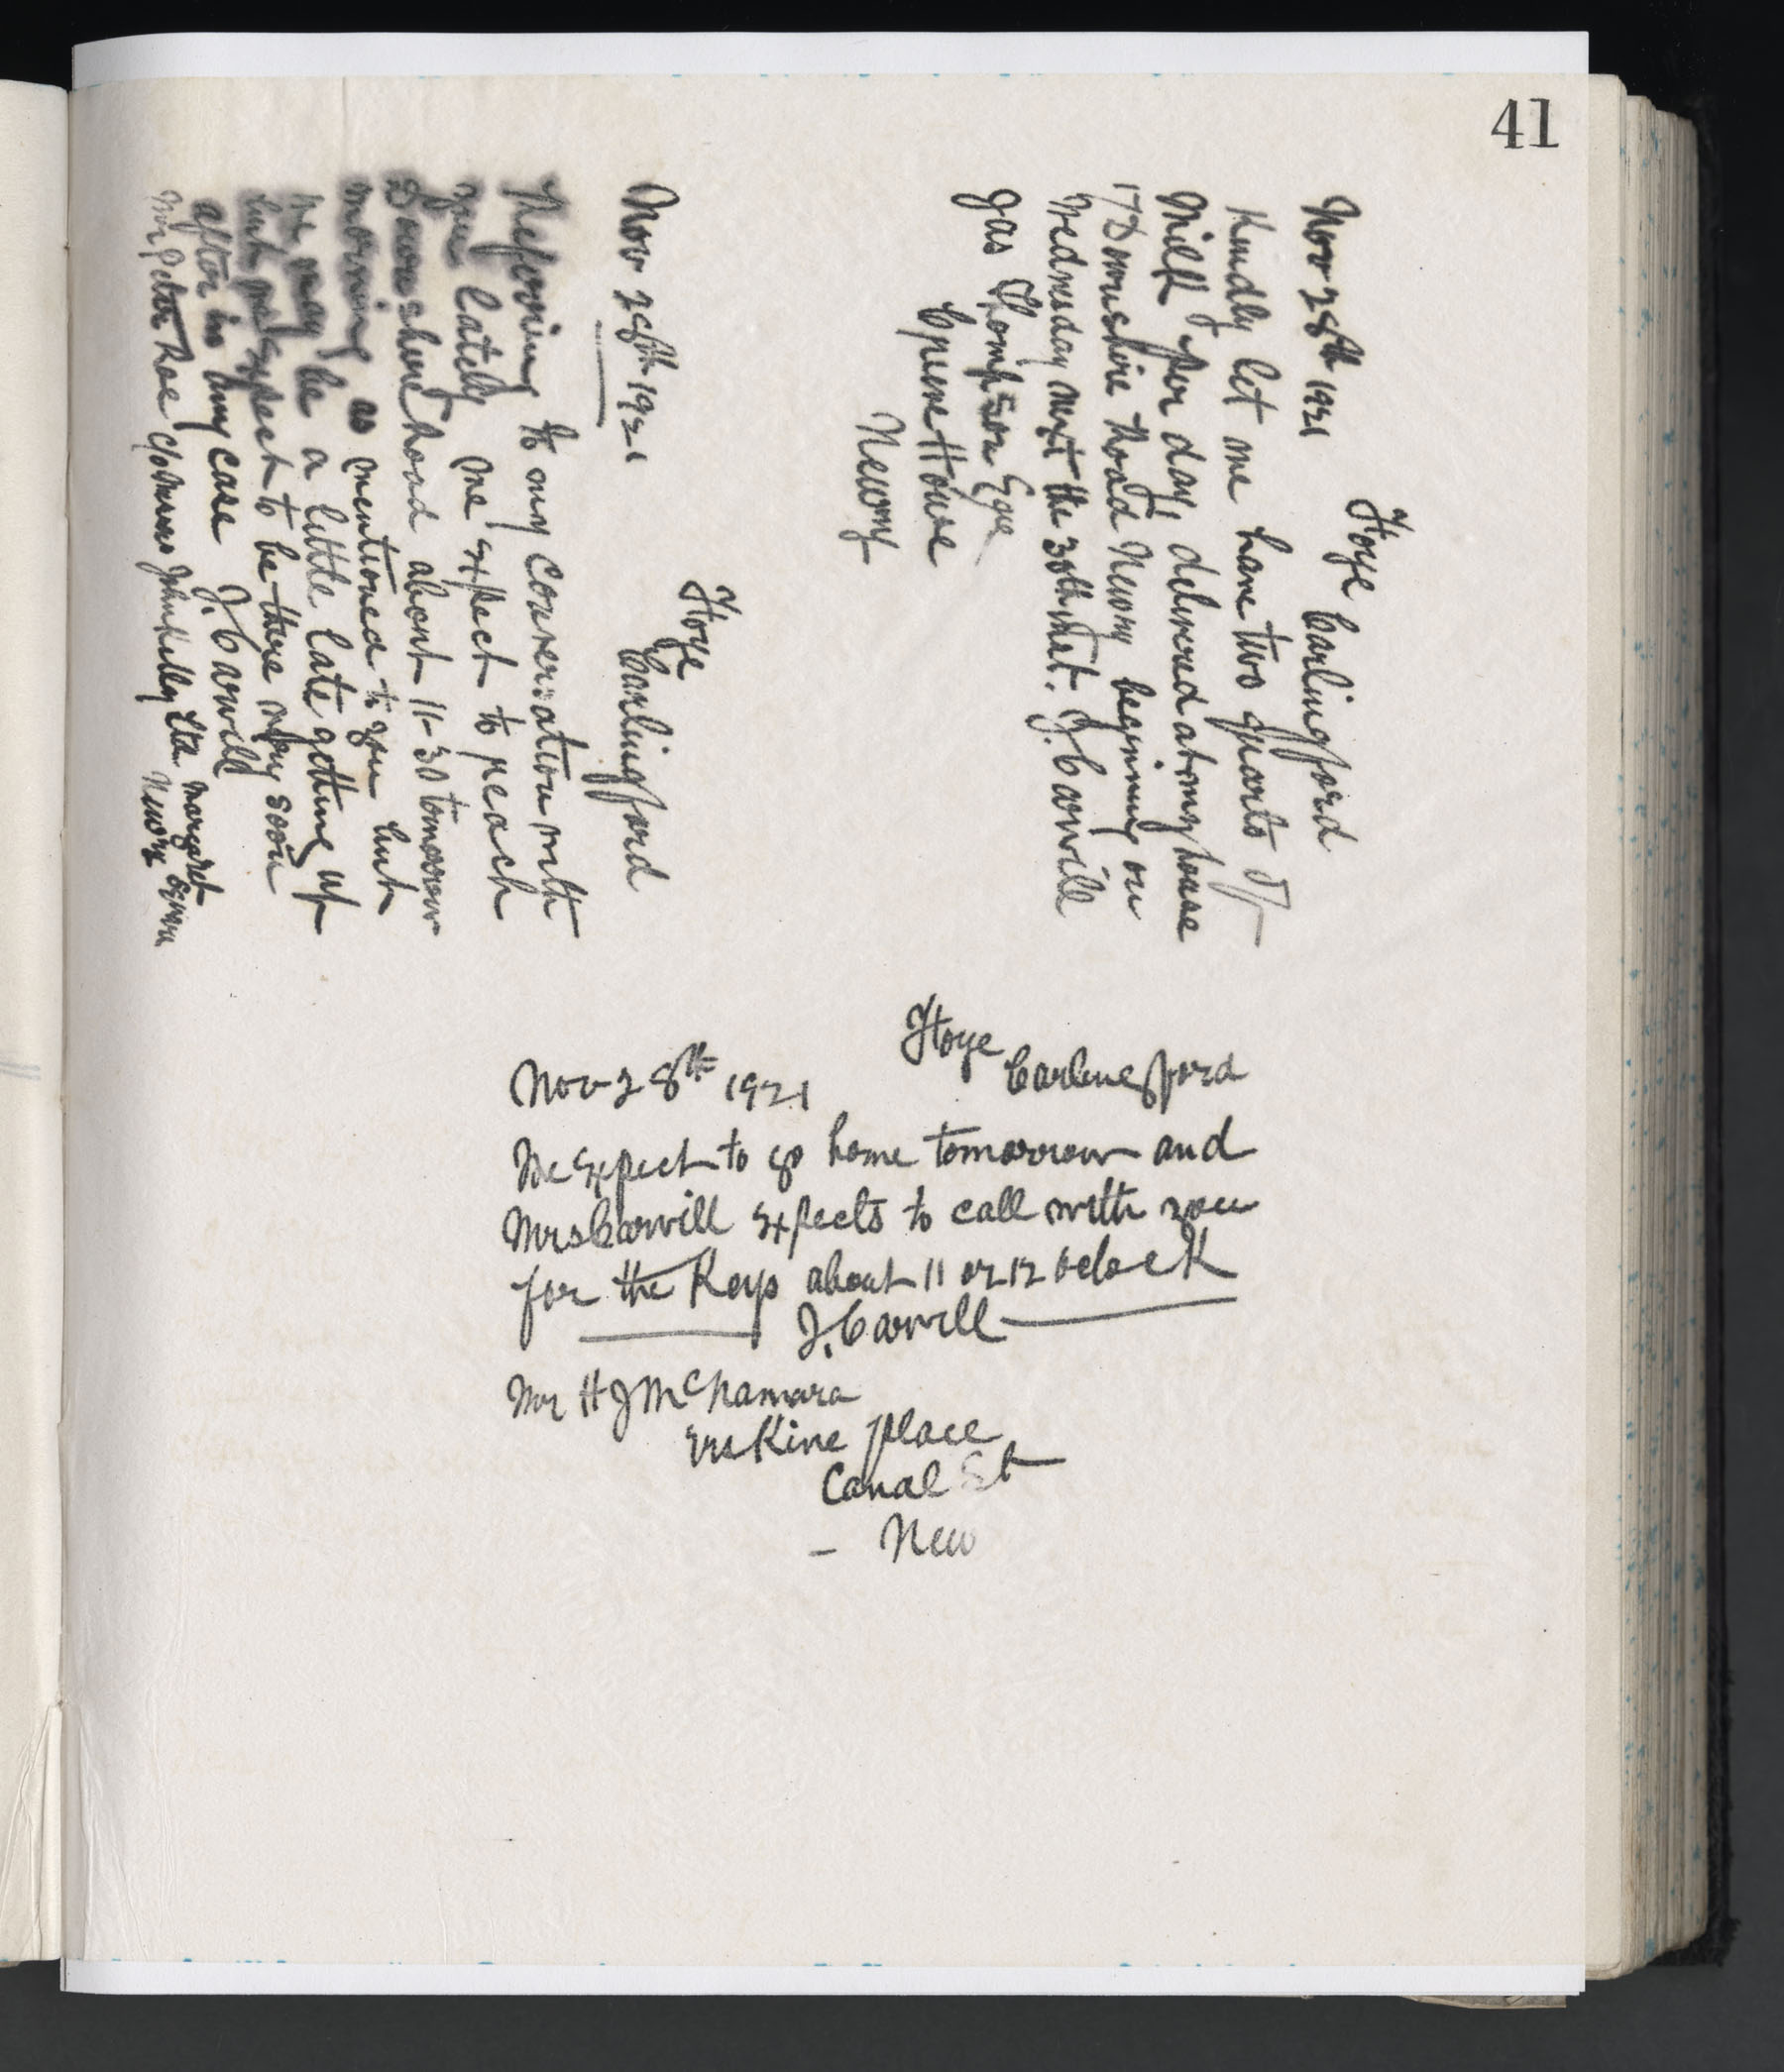 41
Hoye
Carlingford
Nov 28th 1921
Kindly let me have two quarts of
Milk per day, delivered at my house
17 Downshire Road Newry beginning on
Wednesday next the 30th inst. J. Carvill
Jas Thompson Esqe
Greene House
Newry
Hoye
Carlingford
Nov 28th 1921
Referring to my conversation with
you lately we expect to reach
Downshire Road about 11-30 tomorrow
morning as mentioned to you but
we may be a little late getting up
but we expect to be there very soon
after in any case J. Carvill
Mr Peter Rae c/o Messrs John Kelly Ltd Margaret Square
Newry
Hoye
Carlingford
Nov 28th 1921
We expect to go home tomorrow and
Mrs Carvill expects to call with you
for the Keys about 11 or 12 oclock
J. Carvill
Mr H J McNamara
Erskine place
Canal St
- New